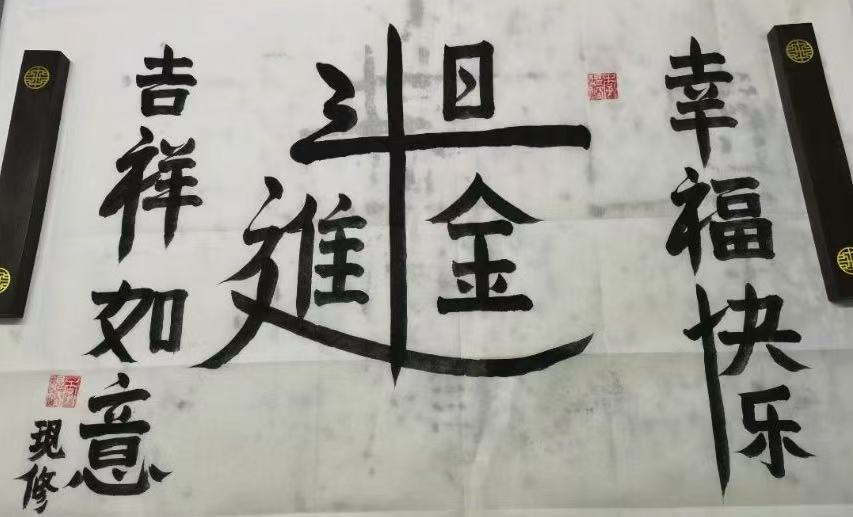 幸福快乐
日進斗金
吉祥如意
現修